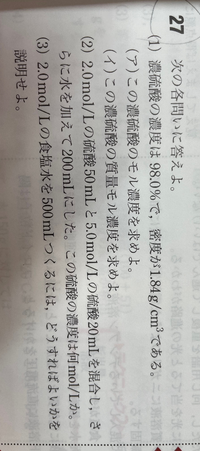 27 次の各問いに答えよ。
(1) 濃硫酸の濃度は98.0%で，密度が1.84g/cm³である。
(ア)この濃硫酸のモル濃度を求めよ。
(イ)この濃硫酸の質量モル濃度を求めよ。
(2) 2.0mol/Lの硫酸50mLと5.0mol/Lの硫酸20mLを混合し，さ
らに水を加えて200mLにした。この硫酸の濃度は何mol/Lか。
(3) 2.0mol/Lの食塩水を500mLつくるには，どうすればよいかを
説明せよ。